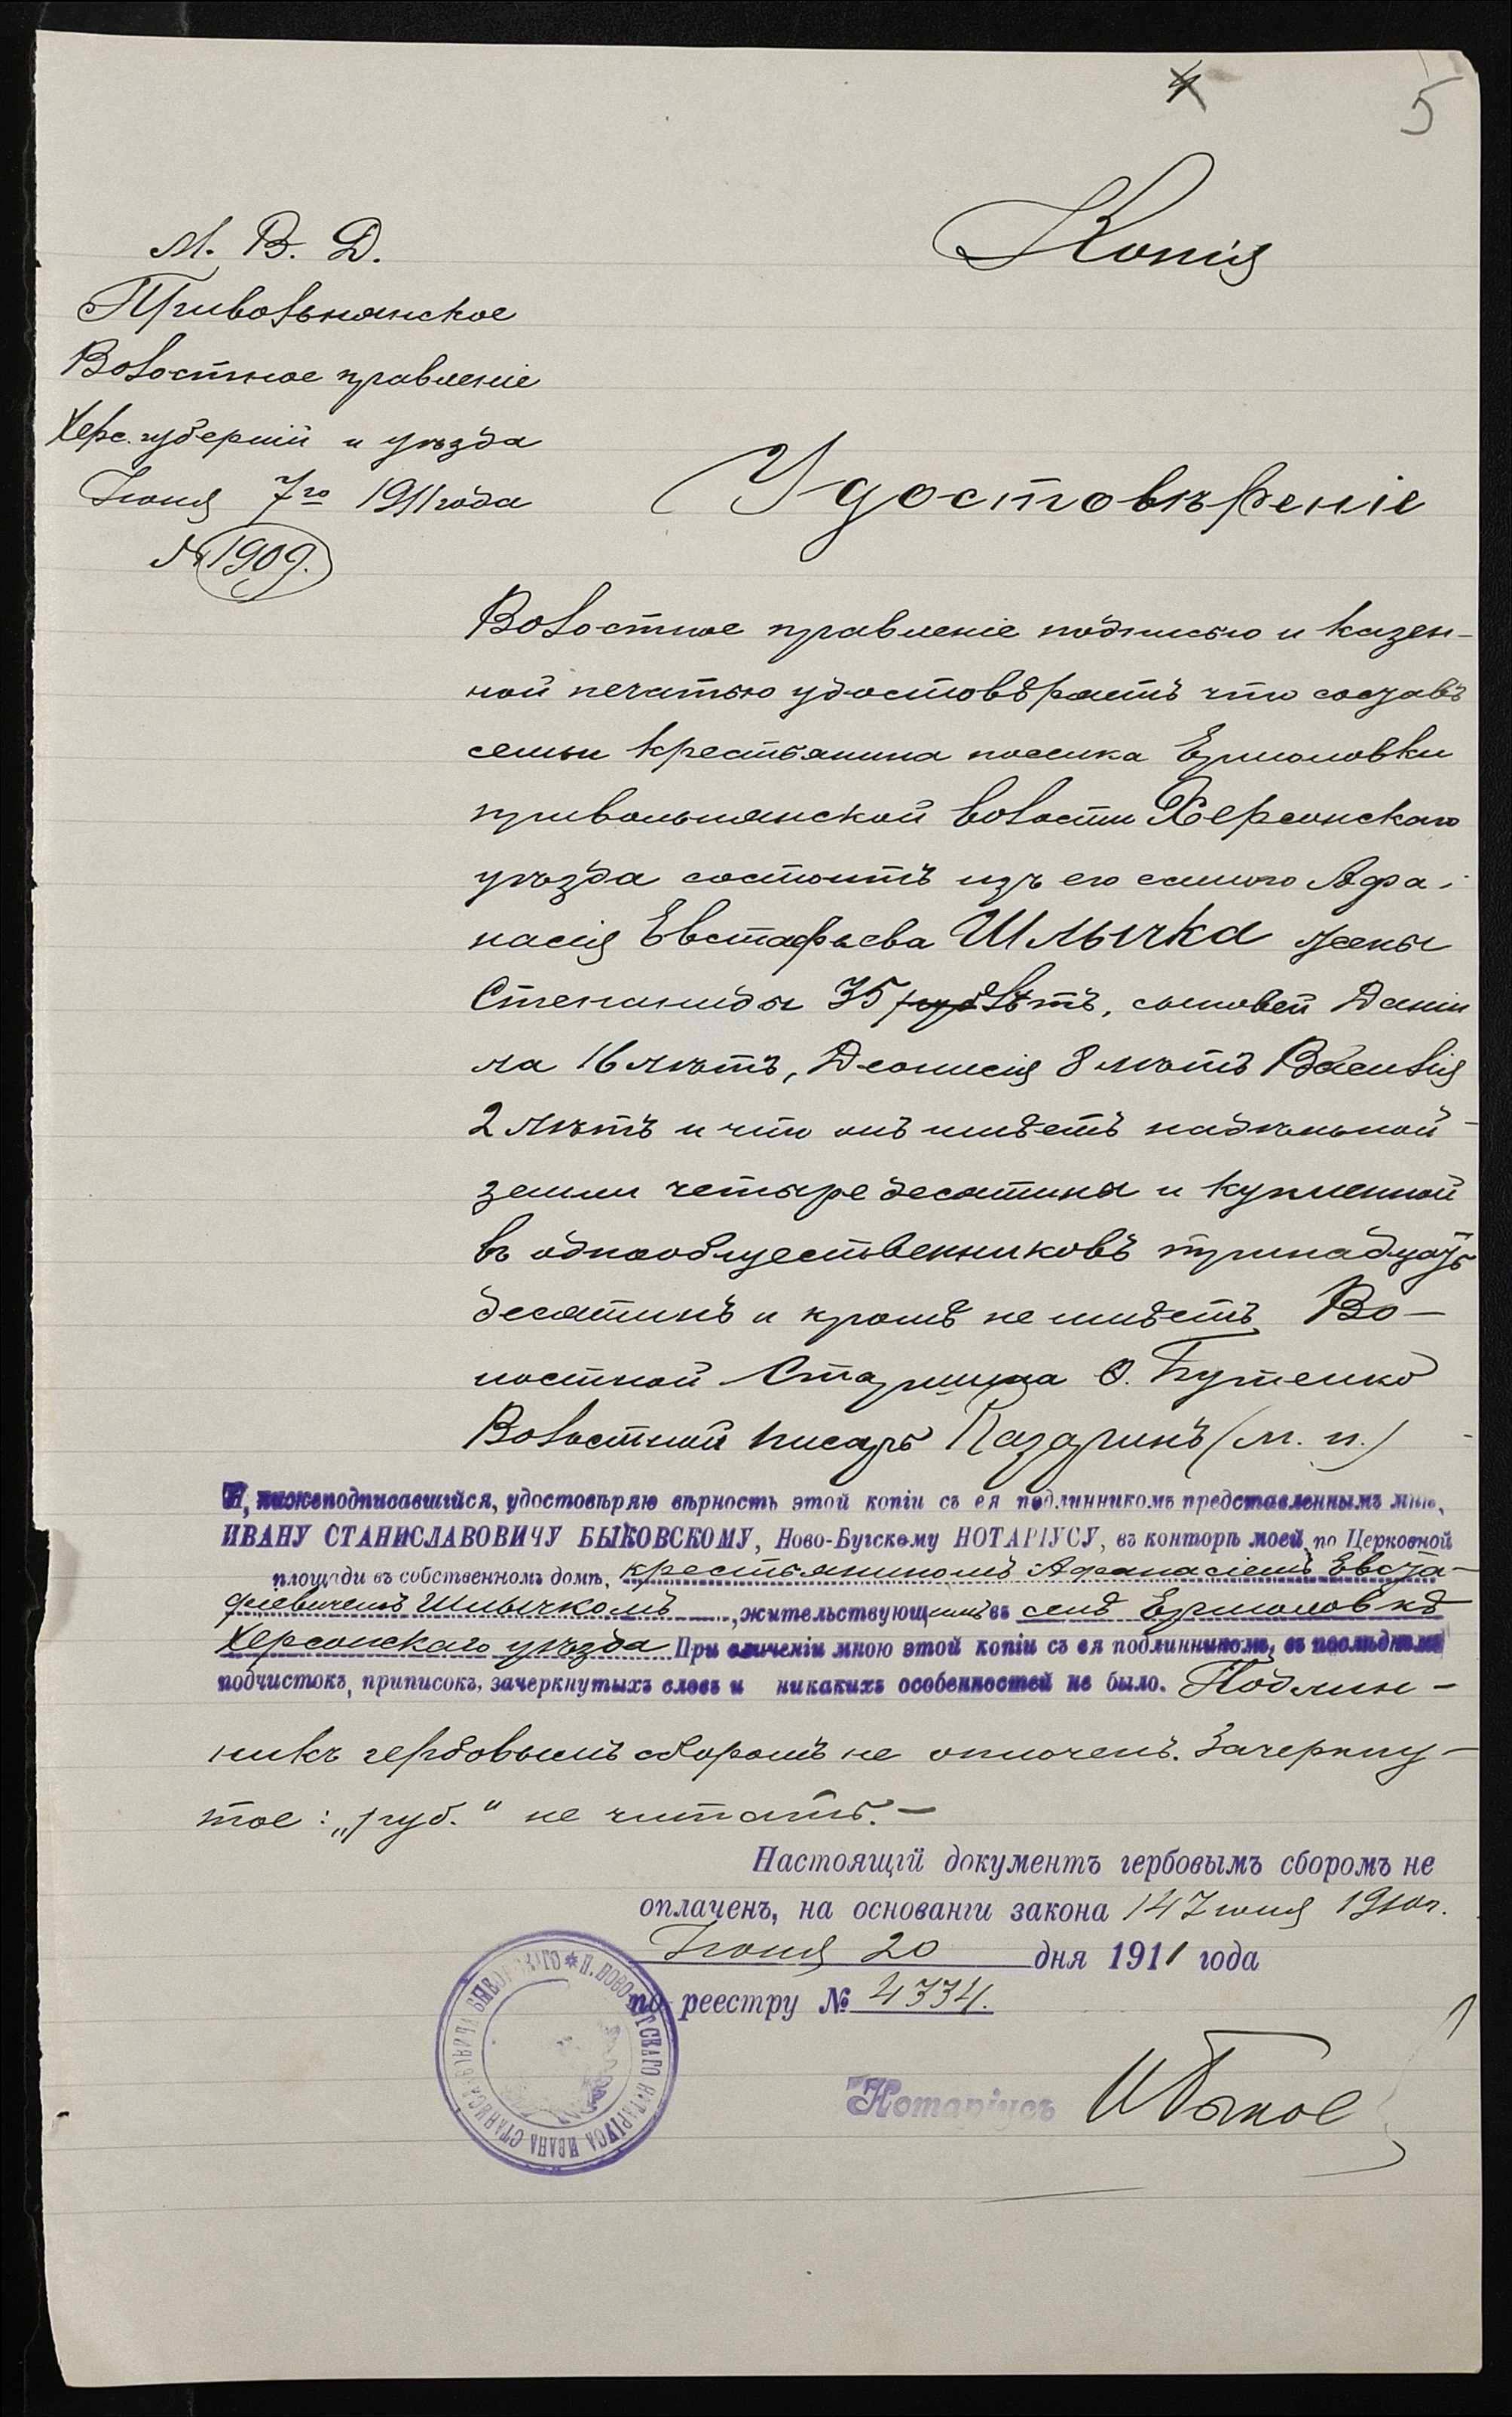 4
5
Копія
М. В. Д.
Привольнянское
Волостное правленіе
Херс. губерніи и уѣзда
Іюня 7го 1911 года
№ 1909.
Удостовѣреніе
Волостное правленіе подписью и казен-
ной печатью удостовѣряетъ что составъ
семьи крестьянина поселка Ермоловки
привольнянской волости Херсонскаго
уѣзда состоитъ изъ его самого Афа-
насія Евстафьева Шлычка жены
Степаниды 35 руб лѣтъ, сыновей Даніи
ла 16 лѣтъ, Деонисія 8 лѣтъ Василія
2 лѣтъ и что онъ имѣетъ надѣльной
земли четыре десятины и купленной
въ однообщественниковъ тринадцать
десятинъ и кромѣ не имѣетъ Во-
лостной Старшина Ѳ. Бутенко
Волостной писарь Назаринъ (м. п.)
Я, нижеподписавшійся, удостовѣряю вѣрность этой копіи съ ея подлинникомъ представленнымъ мнѣ,
ИВАНУ СТАНИСЛАВОВИЧУ БЫКОВСКОМУ, Ново-Бугскому НОТАРІУСУ, въ конторѣ моей по Церковной
площади въ собственномъ домѣ, крестьяниномъ Афанасіемъ Евста-
фіевичемъ Шлычкомъ, жительствующимъ въ селѣ Ермоловкѣ
Херсонскаго уѣзда При сличеніи мною этой копіи съ ея подлинникомъ, въ послѣднемъ
подчистокъ, приписокъ, зачеркнутыхъ словъ и никакихъ особенностей не было. Подлин-
никъ гербовымъ сборомъ не оплоченъ. Зачеркну-
тое: „руб." не читать.-
Настоящій документъ гербовымъ сборомъ не
оплаченъ, на основаніи закона 14 Іюня 1910г.
Іюня 20 дня 1911 года
по реестру № 4334.
Нотаріусъ И Быков
* Н. НОВО-БУГСКАГО НОТАРІУСА ИВАНА СТАНИСЛАВОВИЧА БЫКОВСКАГО